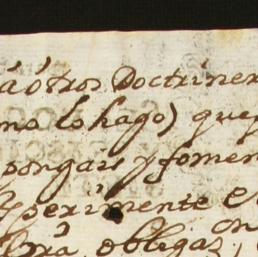 á ótros Doctriner
mo lo hago) que
pongais y fomen
Esperimente e
obligaz, on